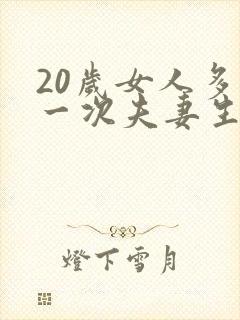 20歲女人多
一次夫妻生
燈下雪月